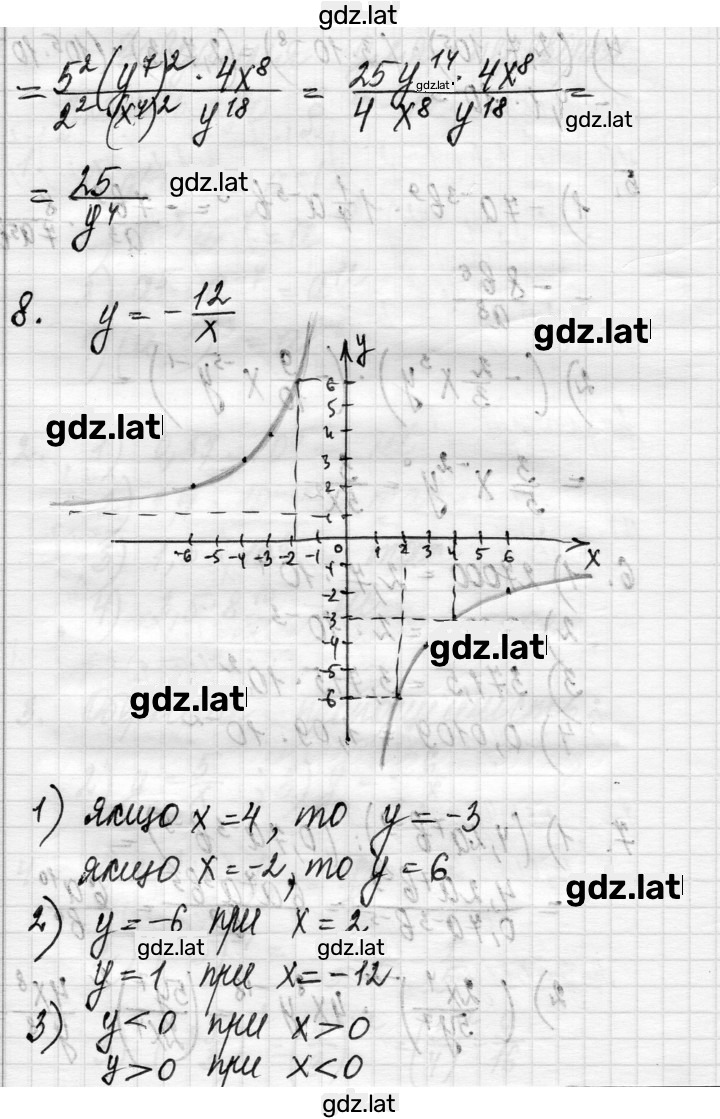 gdz.lat
= 5²(y⁷)² · 4x⁸ / 2² · (x⁴)² y¹⁸ = 25y¹⁴ · 4x⁸ / 4 x⁸ y¹⁸ =
gdz.lat
gdz.lat
= 25 / y⁴ gdz.lat
8. y = - 12/x
gdz.lat
y
gdz.lat
6
5
4
3
2
1
-6 -5 -4 -3 -2 -1 0 1 2 3 4 5 6 x
-1
-2
-3
-4
-5
-6
gdz.lat
gdz.lat
1) якщо x = 4, то y = -3
якщо x = -2, то y = 6
gdz.lat
2) y = -6 при x = 2
gdz.lat gdz.lat
y = 1 при x = -12
3) y < 0 при x > 0
y > 0 при x < 0
gdz.lat